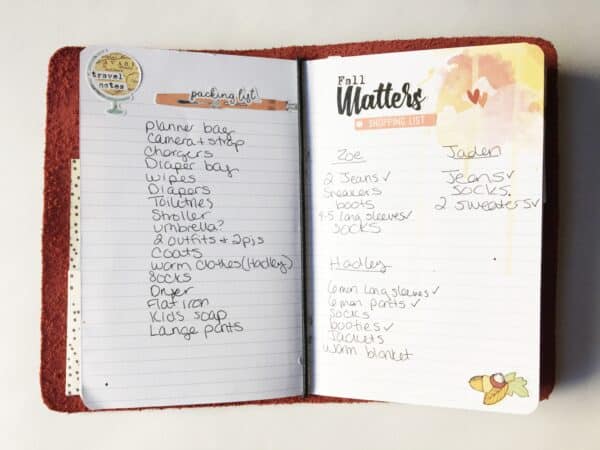 travel
notes
packing list
Planner bag
Camera + strap
Chargers
Diaper bag
Wipes
Diapers
Toiletries
Stroller
umbrella?
2 outfits + 2 pjs
Coats
Warm clothes (Hadley)
Socks
Dryer
Flat iron
Kids soap
Lange pants
Fall
Matters
SHOPPING LIST
Zoe
2 Jeans ✓
Sneakers
boots
4-5 long sleeves ✓
SOCKS
Jaden
Jeans ✓
SOCKS
2 sweaters ✓
Hadley
6mon long sleeves ✓
6mon pants ✓
Socks
booties ✓
Jackets
warm blanket